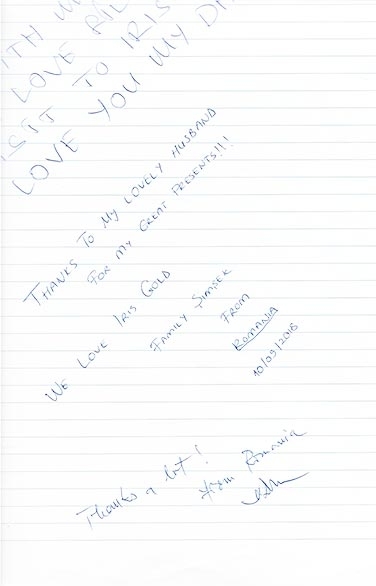 WITH MY
LOVE
VISIT TO IRIS
LOVE YOU MY
THANKS TO MY LOVELY HUSBAND
FOR MY GREAT PRESENTS!!!
WE LOVE IRIS GOLD
FAMILY SIMSEK
FROM
ROMANIA
10/09/2016
Thanks a lot!
from Romania